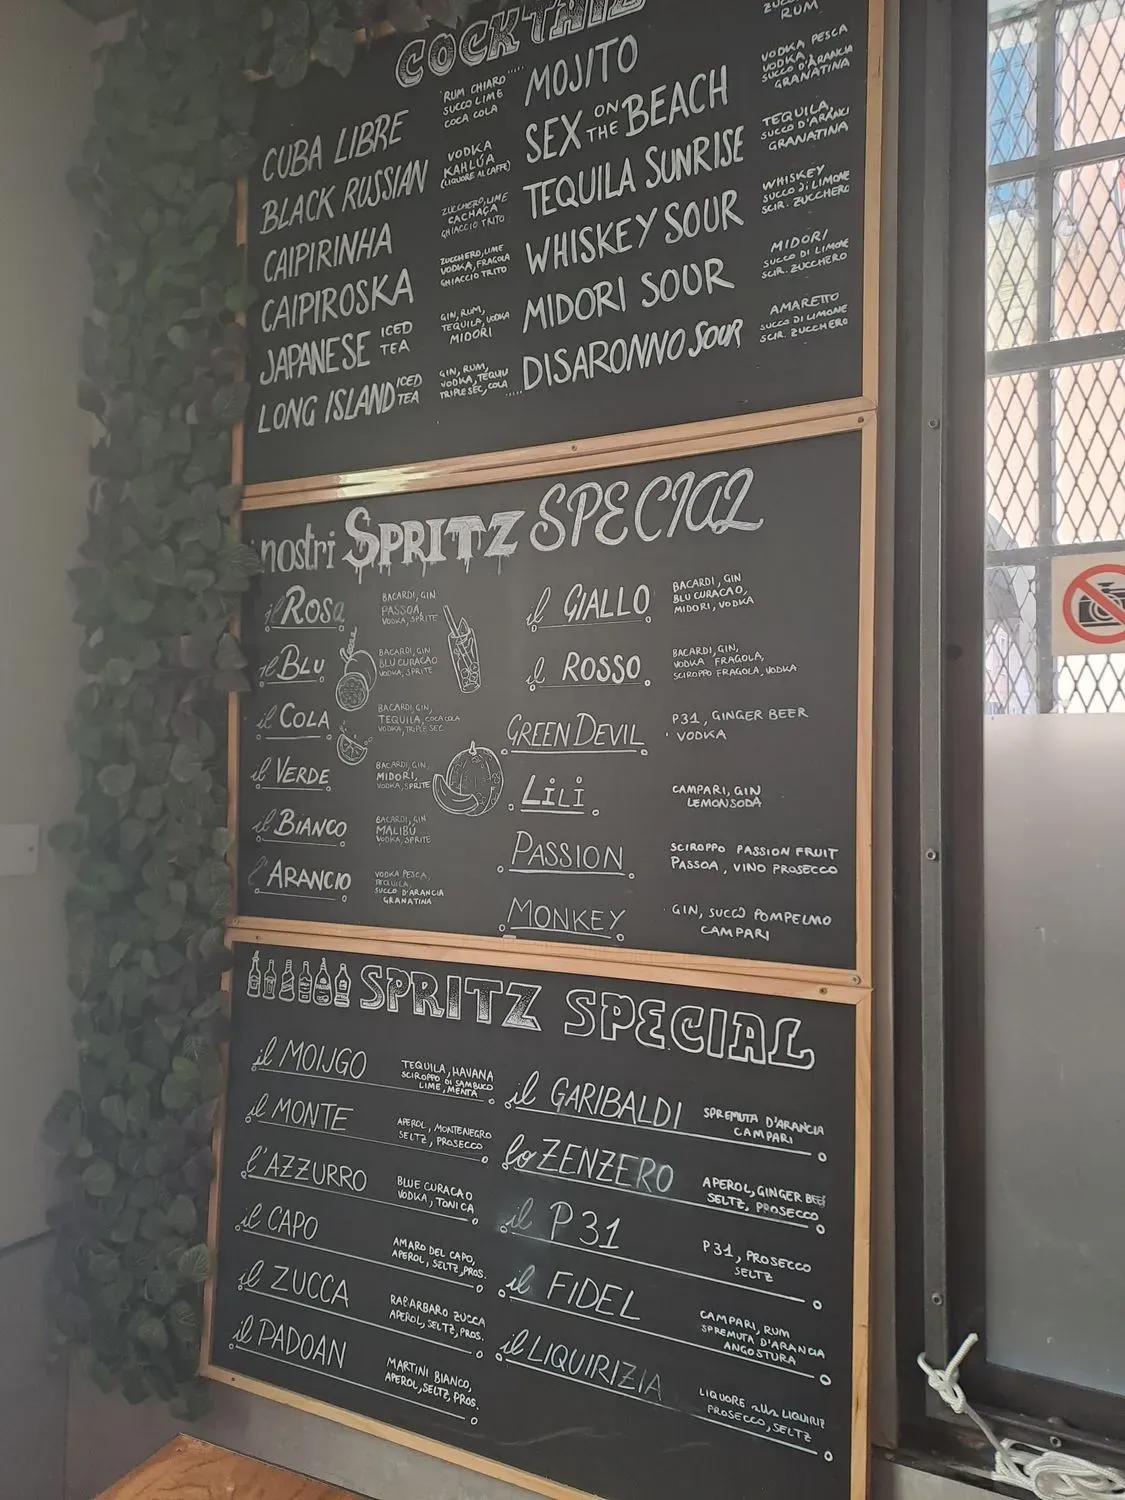 COCKTAIL
CUBA LIBRE
RUM CHIARO
SUCCO LIME
COCA COLA
BLACK RUSSIAN
VODKA
KAHLÚA
(LIQUORE AL CAFFE)
CAIPIRINHA
ZUCCHERO, LIME
CACHAÇA
GHIACCIO TRITO
CAIPIROSKA
ZUCCHERO, LIME
VODKA, FRAGOLA
GHIACCIO TRITO
JAPANESE ICED TEA
GIN, RUM,
TEQUILA, VODKA
MIDORI
LONG ISLAND ICED TEA
GIN, RUM,
VODKA, TEQUI
TRIPLE SEC, COLA
MOJITO
RUM
SEX ON THE BEACH
VODKA PESCA
VODKA,
SUCCO D'ARANCIA
GRANATINA
TEQUILA SUNRISE
TEQUILA,
SUCCO D'ARANCI
GRANATINA
WHISKEY SOUR
WHISKEY
SUCCO DI LIMONE
SCIR. ZUCCHERO
MIDORI SOUR
MIDORI
SUCCO DI LIMONE
SCIR. ZUCCHERO
DISARONNO SOUR
AMARETTO
SUCCO DI LIMONE
SCIR. ZUCCHERO
i nostri SPRITZ SPECIAL
il ROSA
BACARDI, GIN
PASSOA,
VODKA, SPRITE
il BLU
BACARDI, GIN
BLU CURACAO
VODKA, SPRITE
il COLA
BACARDI, GIN,
TEQUILA, COCA COLA
VODKA, TRIPLE SEC
il VERDE
BACARDI, GIN,
MIDORI,
VODKA, SPRITE
il BIANCO
BACARDI, GIN
MALIBÙ
VODKA, SPRITE
l'ARANCIO
VODKA PESCA,
TEQUILA,
SUCCO D'ARANCIA
GRANATINA
il GIALLO
BACARDI, GIN
BLU CURACAO,
MIDORI, VODKA
il ROSSO
BACARDI, GIN,
VODKA FRAGOLA,
SCIROPPO FRAGOLA, VODKA
GREEN DEVIL
P31, GINGER BEER
VODKA
LILI
CAMPARI, GIN
LEMONSODA
PASSION
SCIROPPO PASSION FRUIT
PASSOA, VINO PROSECCO
MONKEY
GIN, SUCCO POMPELMO
CAMPARI
SPRITZ SPECIAL
il MOIJGO
TEQUILA, HAVANA
SCIROPPO DI SAMBUCO
LIME, MENTA
il MONTE
APEROL, MONTENEGRO
SELTZ, PROSECCO
l'AZZURRO
BLUE CURACAO
VODKA, TONICA
il CAPO
AMARO DEL CAPO,
APEROL, SELTZ, PROS.
il ZUCCA
RABARBARO ZUCCA
APEROL, SELTZ, PROS.
il PADOAN
MARTINI BIANCO,
APEROL, SELTZ, PROS.
il GARIBALDI
SPREMUTA D'ARANCIA
CAMPARI
lo ZENZERO
APEROL, GINGER BEE
SELTZ, PROSECCO
il P31
P31, PROSECCO
SELTZ
il FIDEL
CAMPARI, RUM
SPREMUTA D'ARANCIA
ANGOSTURA
il LIQUIRIZIA
LIQUORE alla LIQUIRIZ
PROSECCO, SELTZ